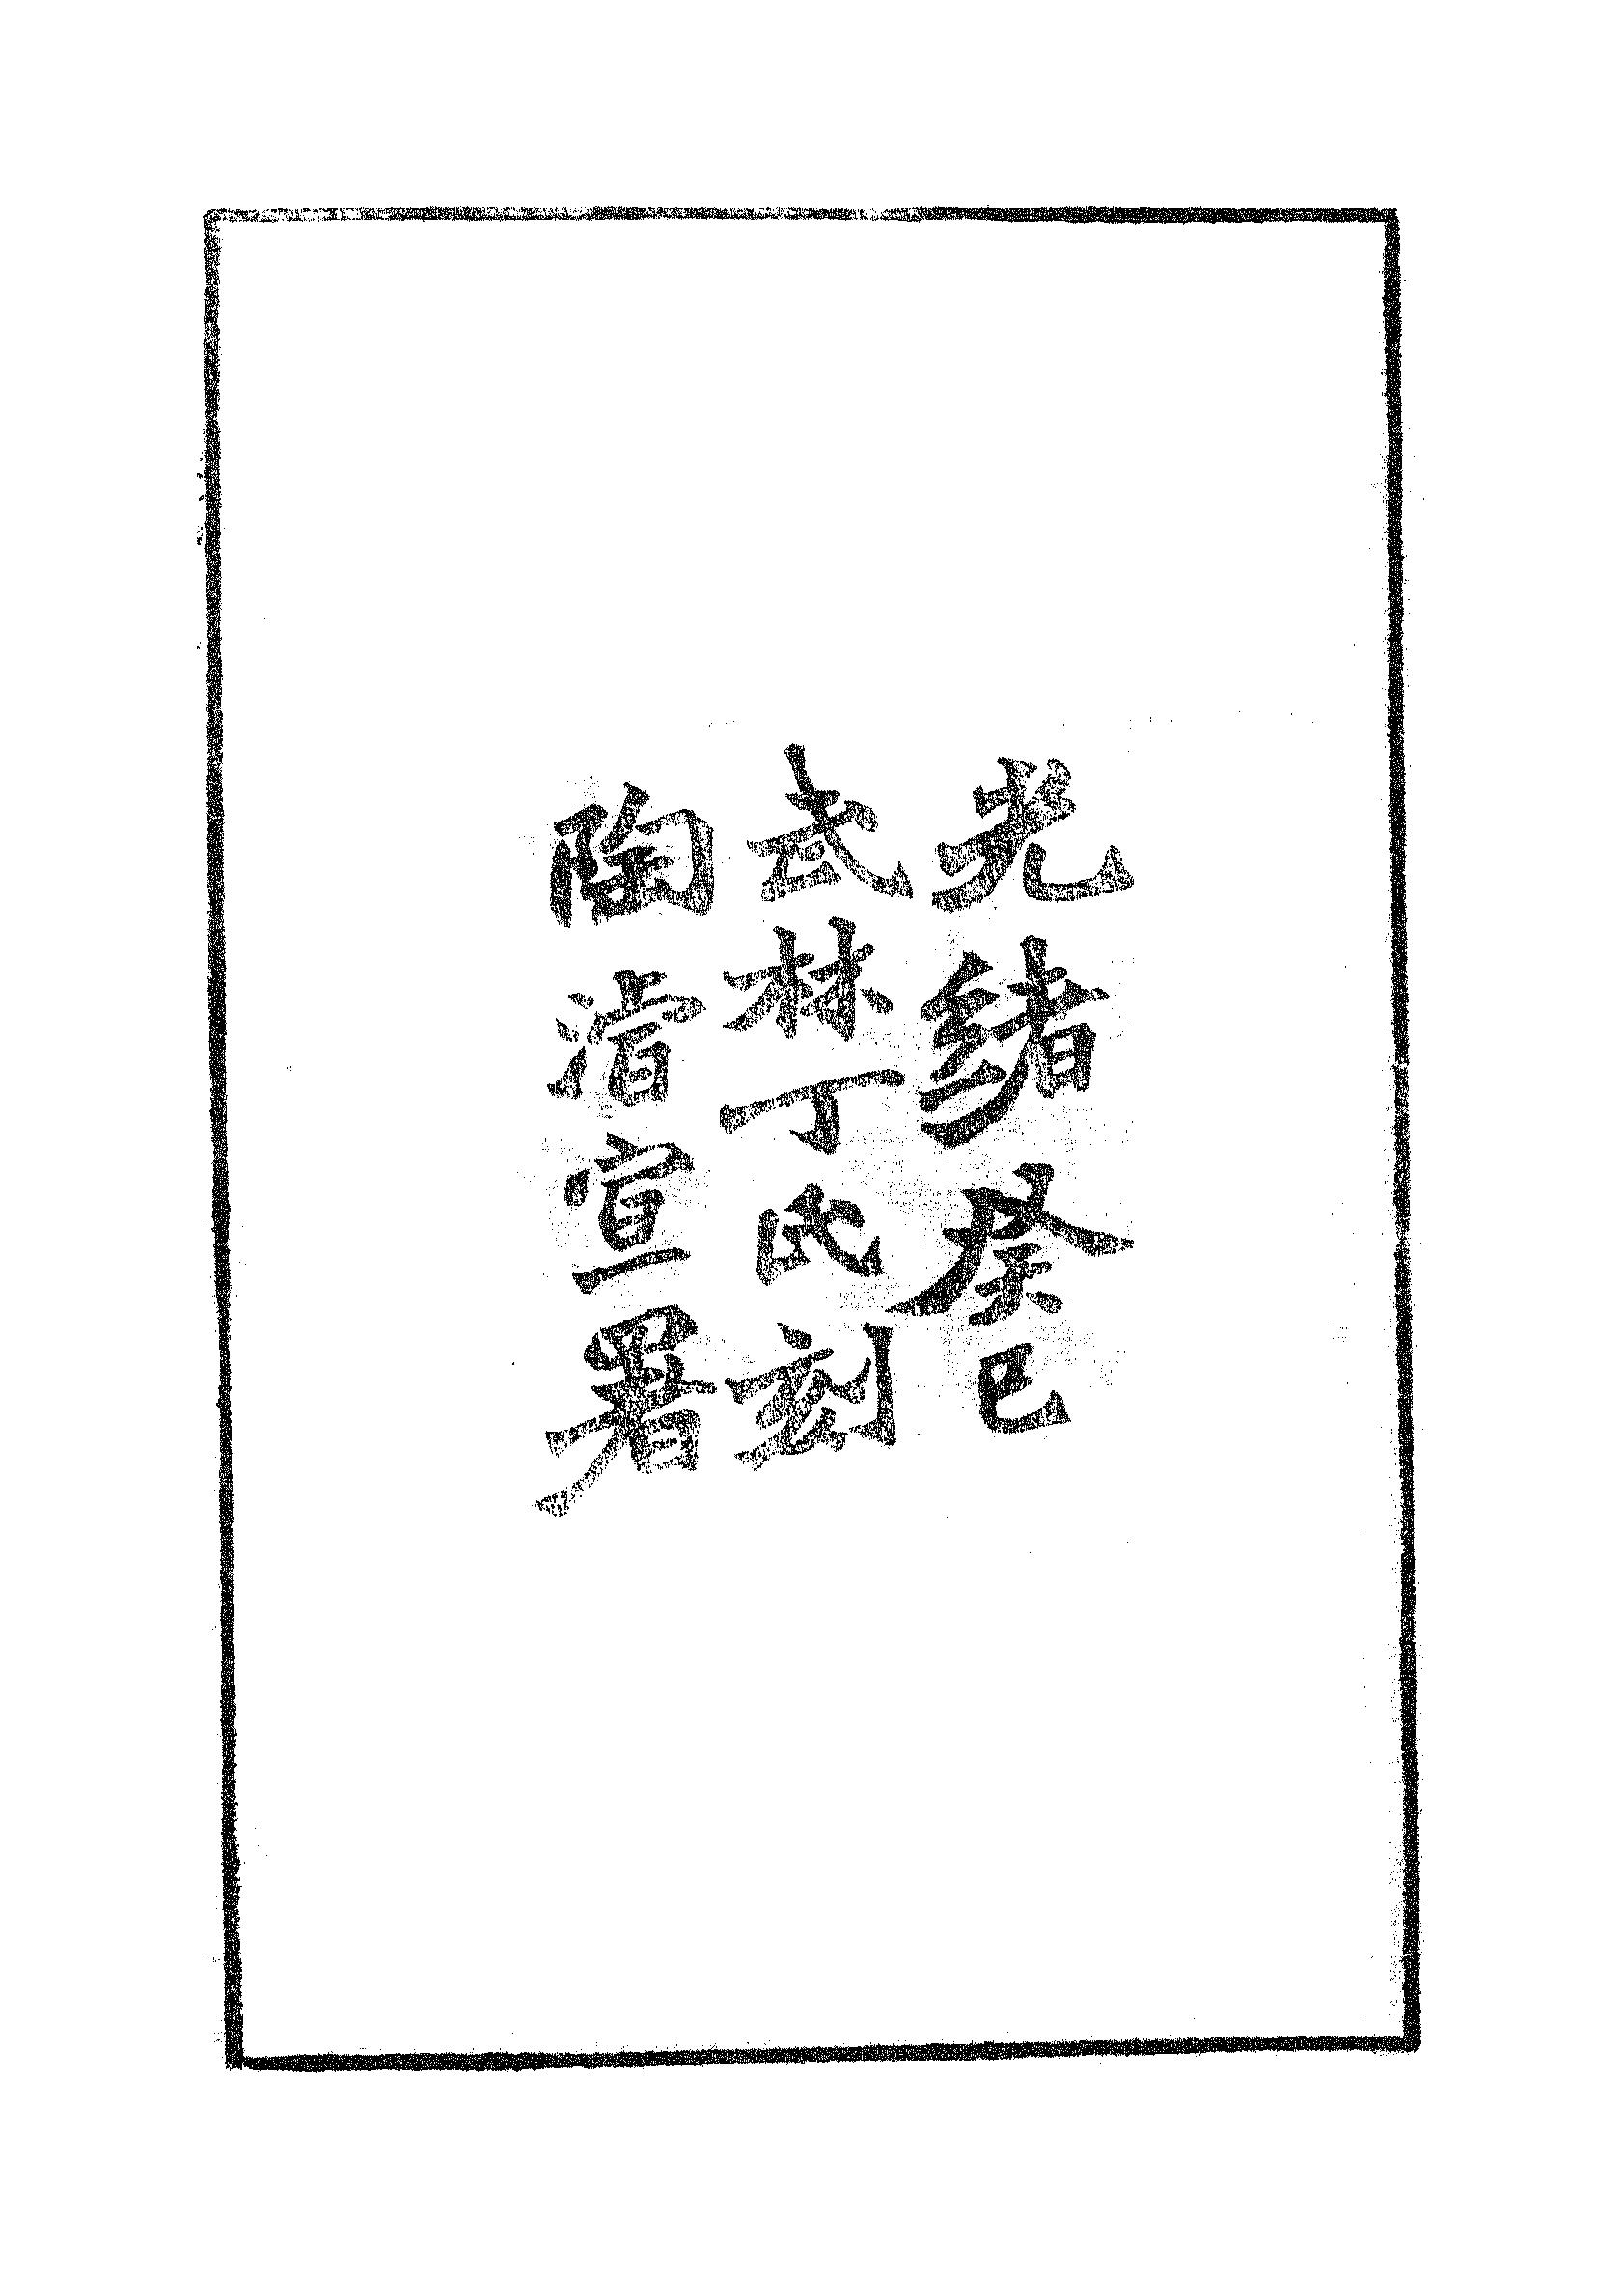 光緒癸巳
武林丁氏刻
陶濬宣署